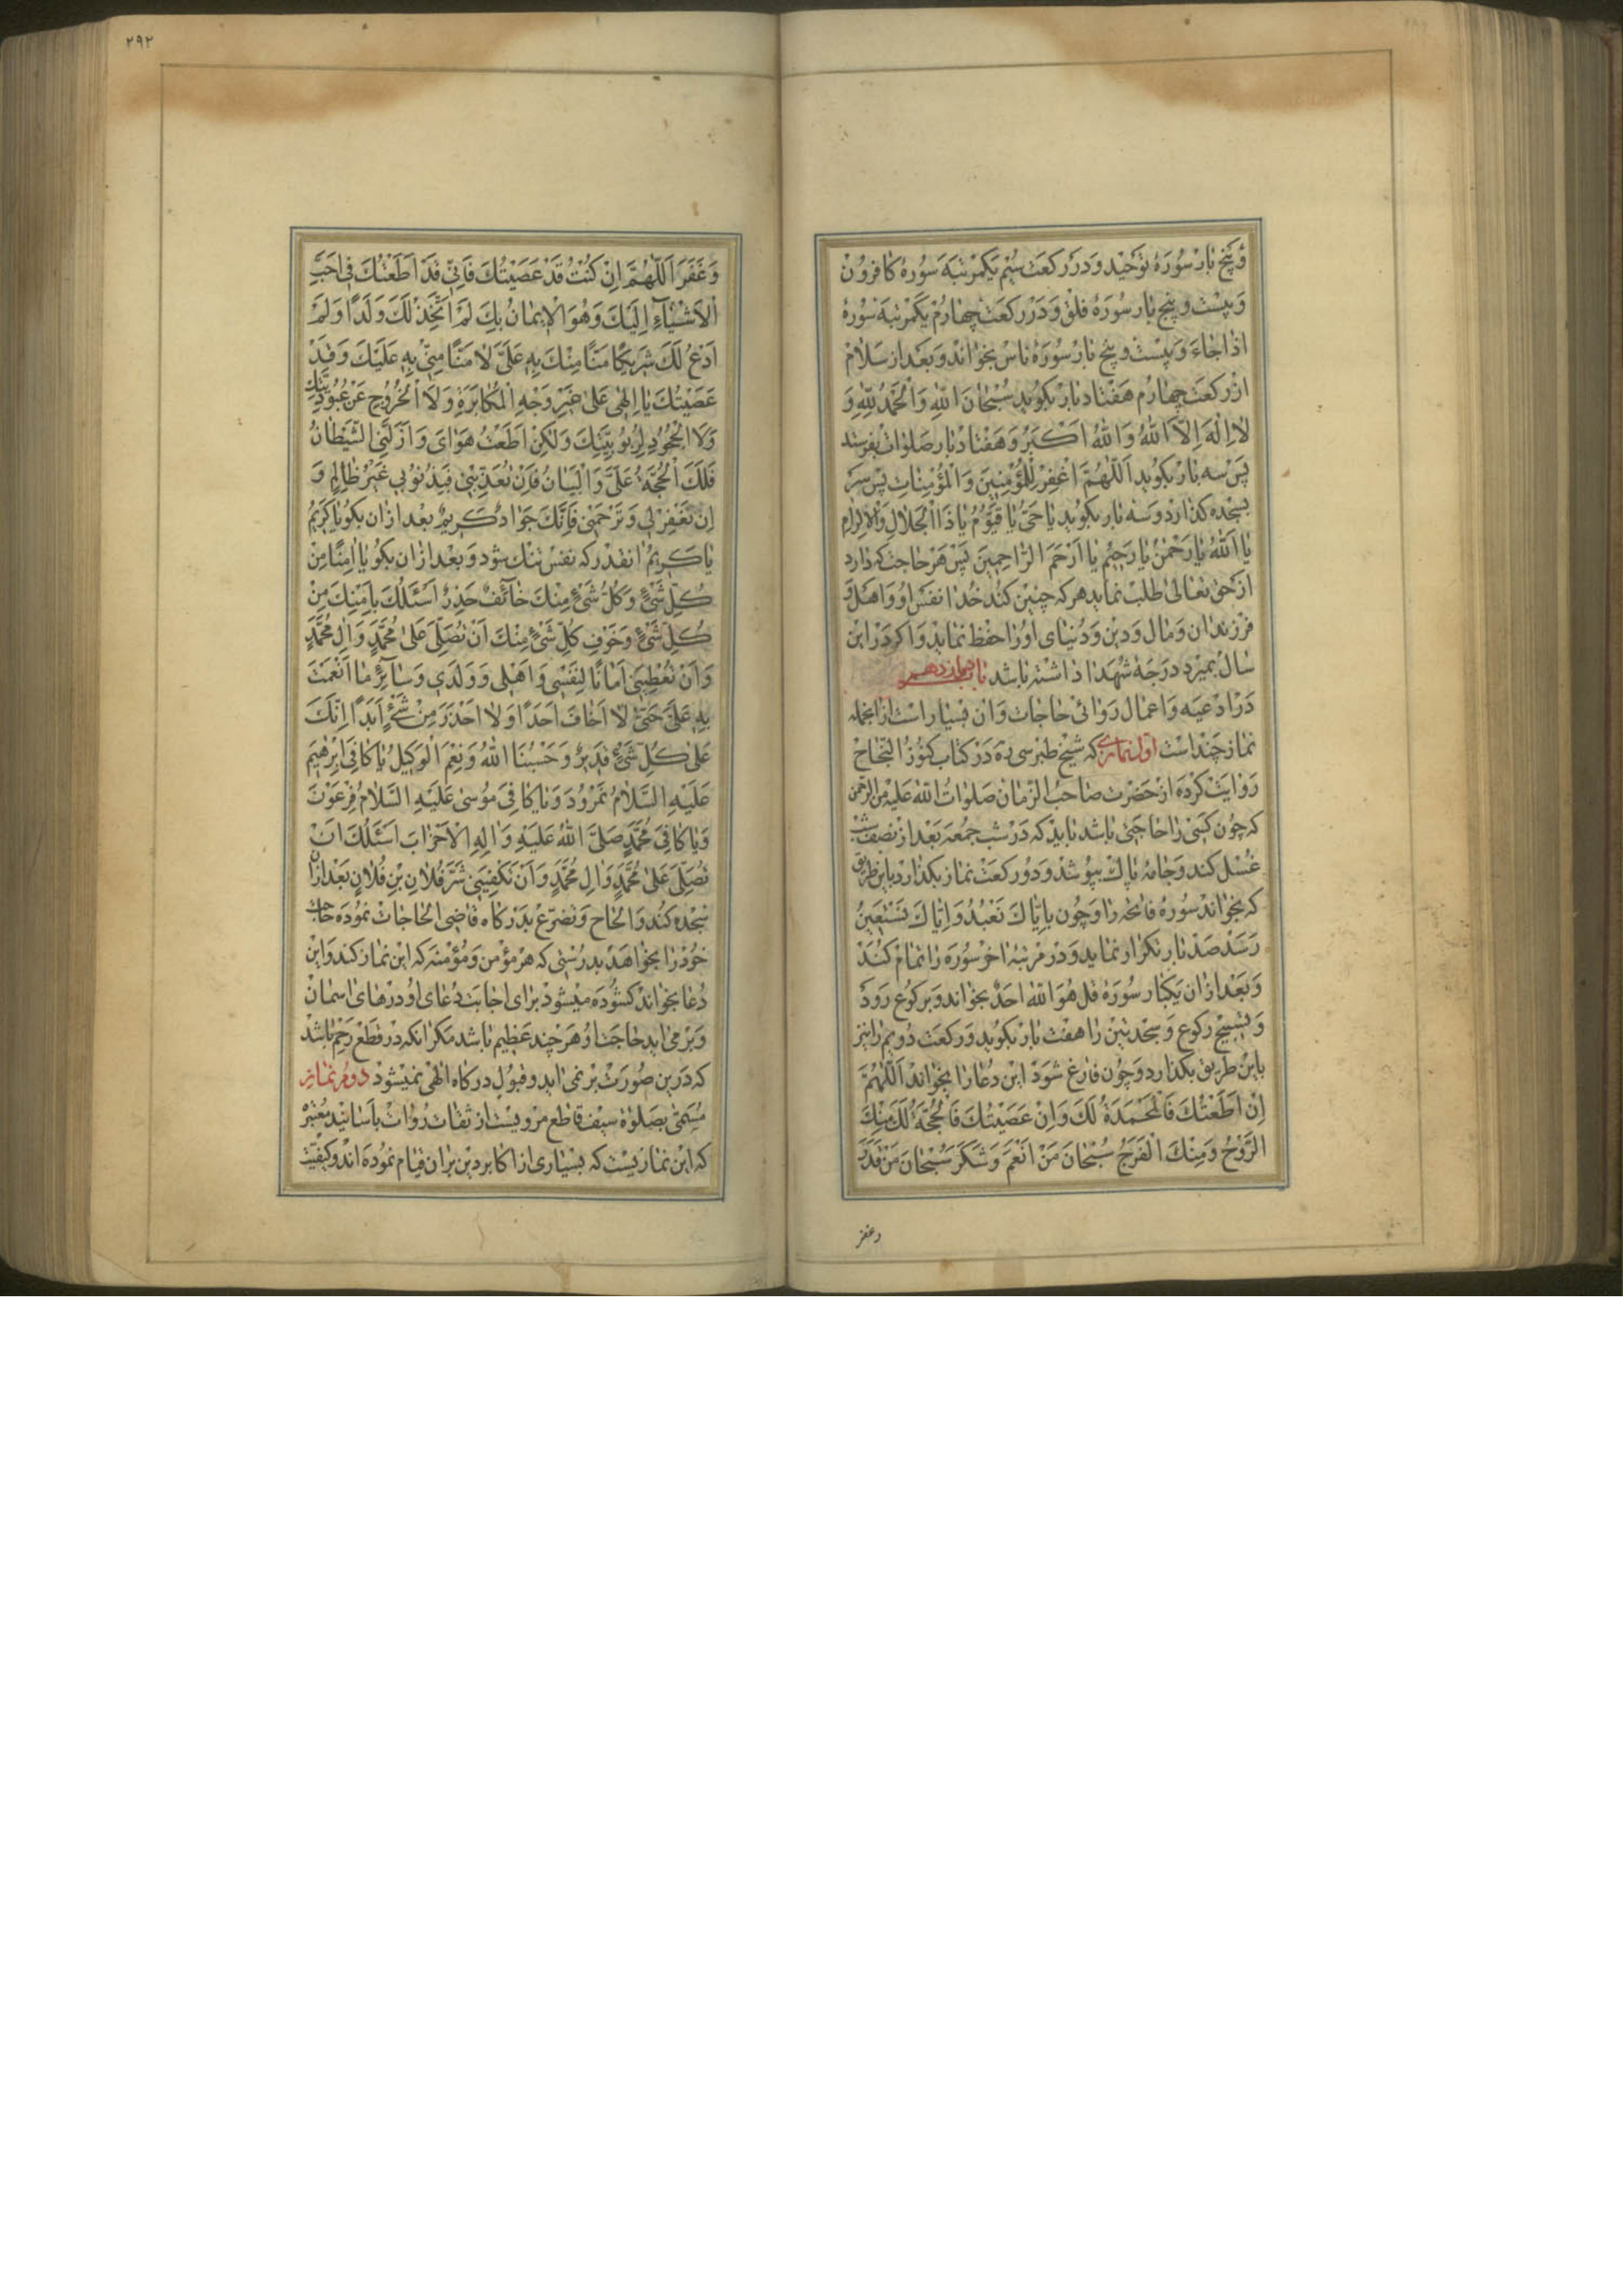 وَپَنج بار سُورَهٔ تَوحید وَدَر رَکعَت سِیُم یَکمَرتبَه سُورهٔ کافرُون
وَبیست و پنج بار سُورَهٔ فلق وَدَر رکعَت چهارُم یَکمَرتبَه سُورهٔ
اذا جاءَ وَبیست و پنج بار سُورَهٔ ناس بخوٰاند وَبَعد از سَلام
از رکعَت چهارُم هَفتاد بار بکوید سُبْحٰانَ اللهِ وَالْحَمْدُ لِلّٰهِ وَ
لٰا اِلٰهَ اِلَّا اللهُ وَاللهُ اَکْبَرُ وَهَفتاد بار صَلوٰات بفرستد
پَس سه بار بکوید اَللّٰهُمَّ اغْفِرْ لِلْمُؤْمِنینَ وَالْمُؤْمِنٰاتِ پس سَر
بسجده کذارد وسَه بار بکوید یٰا حَیُّ یٰا قَیُّوْمُ یٰا ذَا الْجَلالِ وَالْاِکرٰامِ
یٰا اَللهُ یٰا رَحْمٰنُ یٰا رَحیْمُ یٰا اَرْحَمَ الرّٰاحِمینَ پَس هَر حاجت که دارد
از حَق تعٰالیٰ طلبْ نماید هرکه چنین کند خُدا نفس اُو وَاهل وَ
فرزندان وَمال وَدین وَدُنیای اورٰا حفظ نماید وَاکر دَر این
سٰال بمیرد دَرَجهٔ شُهَدا داشته باشد باب چهاردهم
دَر اَدعیَه وَاعمال رَوائی حاجات وَان بسیار است ازانجمله
نماز چند است اول نمازی که شیخ طبرسی ره دَر کتاب کنُوزُ النَّجاح
رَوٰایت کرده از حَضرَت صٰاحبُ الزّمان صَلوٰاتُ اللهِ عَلیه من الرّحمٰن
که چون کسی رٰا حاجتی باشد باید که دَر شب جُمعَه بَعْد از نصف شب
غُسل کند وَجامهٔ پاک بپوشد وَدو رکعَت نماز بکذارد باین طریق
که بخوٰاند سُورهٔ فاتحه را وَچُون بایّٰاکَ نَعْبُدُ وَاِیّٰاکَ نَسْتَعینُ
رَسَد صَد بار تکرار نماید وَدر مرتبهٔ اخر سُورَه رٰا تمام کُند
وَبَعْد ازان یَکبار سُورَهٔ قل هُوَ اللهُ اَحَدٌ بخوٰاند وَبرکوع رَوَد
وَتسبیح رکوع وَسجدتین رٰا هفت بار بکوید وَرکعت دُویم رٰا نیز
باین طریق بکذارد وَچون فارغ شَوَد این دُعارٰا بخوٰاند اَللّٰهُمَّ
اِنْ اَطَعْتُکَ فَالْمَحْمَدَةُ لَکَ وَاِنْ عَصَیْتُکَ فَالْحُجَّةُ لَکَ مِنْکَ
الرَّوْحُ وَمِنْکَ الْفَرَجُ سُبْحٰانَ مَنْ اَنْعَمَ وَشَکَرَ سُبْحٰانَ مَنْ قَدَرَ
وغفر
٢٩٢
وَغَفَرَ اَللّٰهُمَّ اِنْ کُنْتُ قَدْ عَصَیْتُکَ فَاِنّی قَدْ اَطَعْتُکَ فی اَحَبِّ
الْاَشْیٰآءِ اِلَیْکَ وَهُوَ الْایمٰانُ بِکَ لَمْ اَتَّخِذْ لَکَ وَلَدًا وَلَمْ
اَدْعُ لَکَ شَریکًا مَنًّا مِنْکَ بِهِ عَلَیَّ لٰا مَنًّا مِنّی بِهِ عَلَیْکَ وَقَدْ
عَصَیْتُکَ یٰا اِلٰهی عَلیٰ غَیْرِ وَجْهِ الْمُکٰابَرَةِ وَلَا الْخُرُوْجِ عَنْ عُبُوْدِیَّتِکَ
وَلَا الْجُحُوْدِ لِرُبُوْبِیَّتِکَ وَلٰکِنْ اَطَعْتُ هَوٰایَ وَاَزَلَّنِی الشَّیْطٰانُ
فَلَکَ الْحُجَّةُ عَلَیَّ وَالْبَیٰانُ فَاِنْ تُعَذِّبْنی فَبِذُنُوْبی غَیْرُ ظٰالِمٍ وَ
اِنْ تَغْفِرْ لی وَتَرْحَمْنی فَاِنَّکَ جَوٰادٌ کَریمٌ بعد ازان بکو یٰا کَریْمُ
یٰا کَریْمُ انقدر که نفس تنک شود وَبعد ازان بکو یٰا اٰمِنًا مِنْ
کُلِّ شَیْءٍ وَکُلُّ شَیْءٍ مِنْکَ خٰآئِفٌ حَذِرٌ اَسْئَلُکَ بِاَمْنِکَ مِنْ
کُلِّ شَیْءٍ وَخَوْفِ کُلِّ شَیْءٍ مِنْکَ اَنْ تُصَلِّیَ عَلیٰ مُحَمَّدٍ وَاٰلِ مُحَمَّدٍ
وَاَنْ تُعْطِیَنی اَمٰانًا لِنَفْسی وَاَهْلی وَوَلَدی وَسٰآئِرِ مٰا اَنْعَمْتَ
بِهِ عَلَیَّ حَتّیٰ لٰا اَخٰافَ اَحَدًا وَلٰا اَحْذَرَ مِنْ شَیْءٍ اَبَدًا اِنَّکَ
عَلیٰ کُلِّ شَیْءٍ قَدیرٌ وَحَسْبُنَا اللهُ وَنِعْمَ الْوَکیلُ یٰا کٰافِیَ اِبْرٰهیمَ
عَلَیْهِ السَّلٰامُ نَمْرُوْدَ وَیٰا کٰافِیَ مُوْسیٰ عَلَیْهِ السَّلٰامُ فِرْعَوْنَ
وَیٰا کٰافِیَ مُحَمَّدٍ صَلَّی اللهُ عَلَیْهِ وَاٰلِهِ الْاَحْزٰابَ اَسْئَلُکَ اَنْ
تُصَلِّیَ عَلیٰ مُحَمَّدٍ وَاٰلِ مُحَمَّدٍ وَاَنْ تَکْفِیَنی شَرَّ فُلٰانِ بْنِ فُلٰانٍ بَعْد ازان
سجده کند وَالحاح وَتضرّع بدَرکاه قاضی الحاجات نموده حاجت
خود رٰا بخوٰاهد بدرستی که هر مؤمن وَمؤمنه که این نماز کند وَاین
دُعا بخوٰاند کشوده میشود برای اجابت دُعای اُو درهای اسمان
وَبَر می اید حاجت اُو هَرچند عَظیم باشد مکر انکه در قطع رَحِم باشد
که دَرین صُورت بر نمی اید وقبول درکاه الٰهی نمیشود دوم نمازی
مُسَمّیٰ بصَلوٰة سیف قاطع مرویست از ثقات رُوات باَسانید مُعتبر
که این نمازیست که بسیاری از اکابر دین بران قیام نموده اند وکیفیت